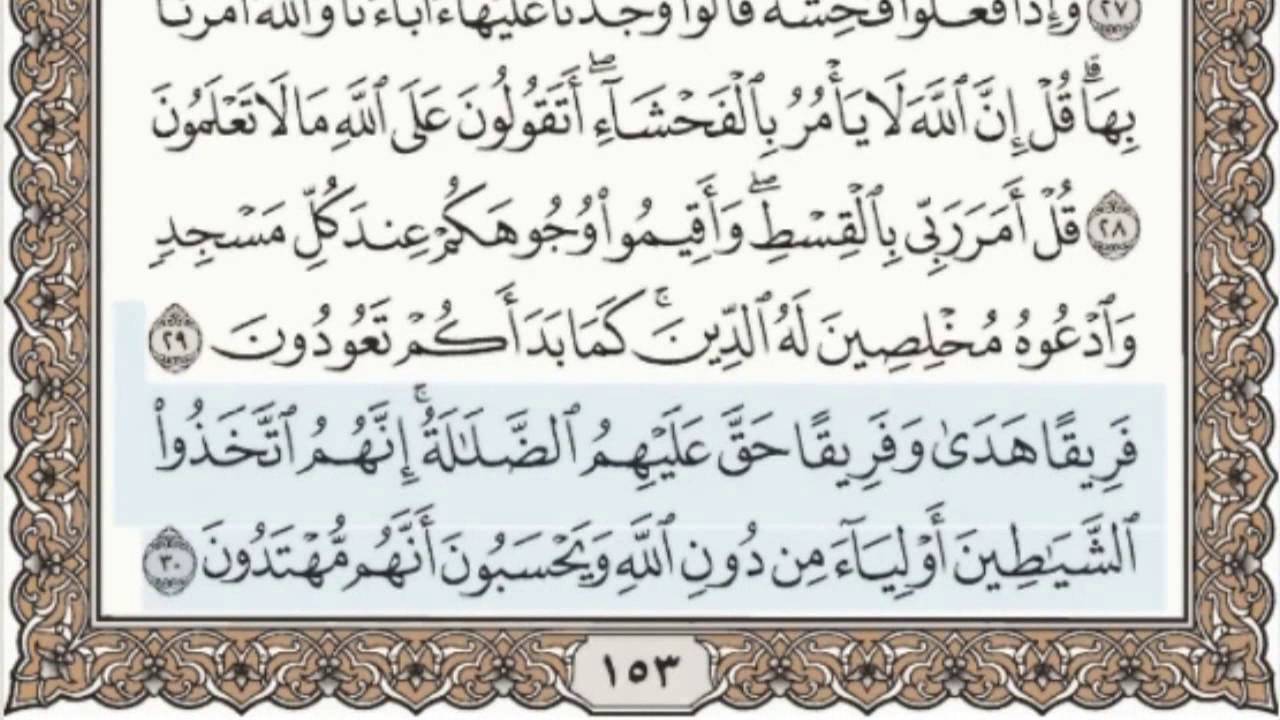 ٢٧ وَإِذَا فَعَلُوا۟ فَـٰحِشَةً قَالُوا۟ وَجَدْنَا عَلَيْهَآ ءَابَآءَنَا وَٱللَّهُ أَمَرَنَا
بِهَا ۗ قُلْ إِنَّ ٱللَّهَ لَا يَأْمُرُ بِٱلْفَحْشَآءِ ۖ أَتَقُولُونَ عَلَى ٱللَّهِ مَا لَا تَعْلَمُونَ
٢٨ قُلْ أَمَرَ رَبِّى بِٱلْقِسْطِ ۖ وَأَقِيمُوا۟ وُجُوهَكُمْ عِندَ كُلِّ مَسْجِدٍ
وَٱدْعُوهُ مُخْلِصِينَ لَهُ ٱلدِّينَ ۚ كَمَا بَدَأَكُمْ تَعُودُونَ ٢٩
فَرِيقًا هَدَىٰ وَفَرِيقًا حَقَّ عَلَيْهِمُ ٱلضَّلَـٰلَةُ ۚ إِنَّهُمُ ٱتَّخَذُوا۟
ٱلشَّيَـٰطِينَ أَوْلِيَآءَ مِن دُونِ ٱللَّهِ وَيَحْسَبُونَ أَنَّهُم مُّهْتَدُونَ ٣٠
١٥٣